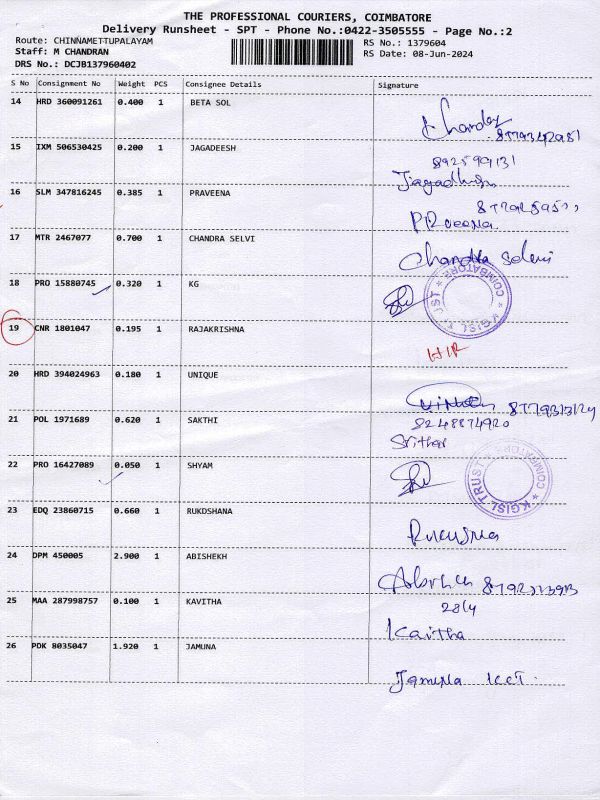 THE PROFESSIONAL COURIERS, COIMBATORE
Delivery Runsheet - SPT - Phone No.:0422-3505555 - Page No.:2
Route: CHINNAMETTUPALAYAM RS No.: 1379604
Staff: M CHANDRAN RS Date: 08-Jun-2024
DRS No.: DCJB137960402
S No Consignment No Weight PCS Consignee Details Signature
14 HRD 360091261 0.400 1 BETA SOL
15 IXM 506530425 0.200 1 JAGADEESH
16 SLM 347816245 0.385 1 PRAVEENA
PRveena
17 MTR 2467077 0.700 1 CHANDRA SELVI Chandra Selvi
18 PRO 15880745 0.320 1 KG
KGISL TRUST COIMBATORE
19 CNR 1801047 0.195 1 RAJAKRISHNA
20 HRD 394024963 0.180 1 UNIQUE
21 POL 1971689 0.620 1 SAKTHI 8248874920
Srither
22 PRO 16427089 0.050 1 SHYAM
KGISL TRUST COIMBATORE
23 EDQ 23860715 0.660 1 RUKDSHANA
24 DPM 450005 2.900 1 ABISHEKH
25 MAA 287998757 0.100 1 KAVITHA
Kavitha
26 PDK 8035047 1.920 1 JAMUNA
Jamuna